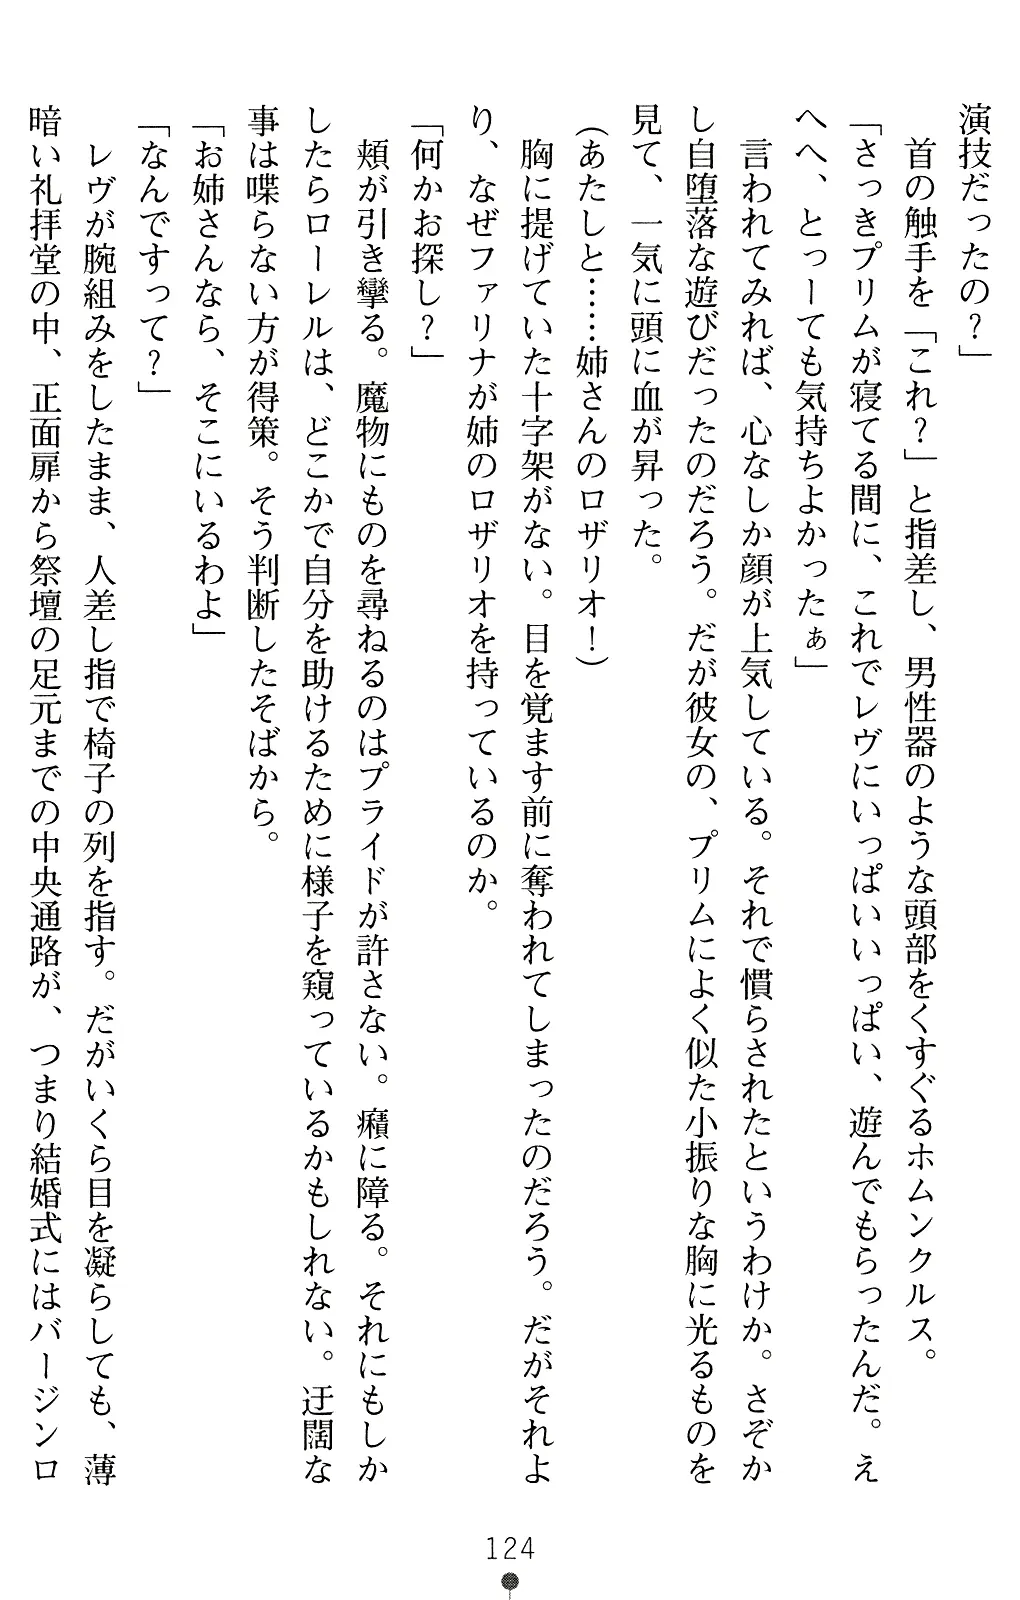 演技だったの？」
　首の触手を「これ？」と指差し、男性器のような頭部をくすぐるホムンクルス。
「さっきプリムが寝てる間に、これでレヴにいっぱいいっぱい、遊んでもらったんだ。え
へへ、とっーても気持ちよかったぁ」
　言われてみれば、心なしか顔が上気している。それで慣らされたというわけか。さぞか
し自堕落な遊びだったのだろう。だが彼女の、プリムによく似た小振りな胸に光るものを
見て、一気に頭に血が昇った。
（あたしと……姉さんのロザリオ！）
　胸に提げていた十字架がない。目を覚ます前に奪われてしまったのだろう。だがそれよ
り、なぜファリナが姉のロザリオを持っているのか。
「何かお探し？」
　頬が引き攣る。魔物にものを尋ねるのはプライドが許さない。癪に障る。それにもしか
したらローレルは、どこかで自分を助けるために様子を窺っているかもしれない。迂闊な
事は喋らない方が得策。そう判断したそばから。
「お姉さんなら、そこにいるわよ」
「なんですって？」
　レヴが腕組みをしたまま、人差し指で椅子の列を指す。だがいくら目を凝らしても、薄
暗い礼拝堂の中、正面扉から祭壇の足元までの中央通路が、つまり結婚式にはバージンロ
124